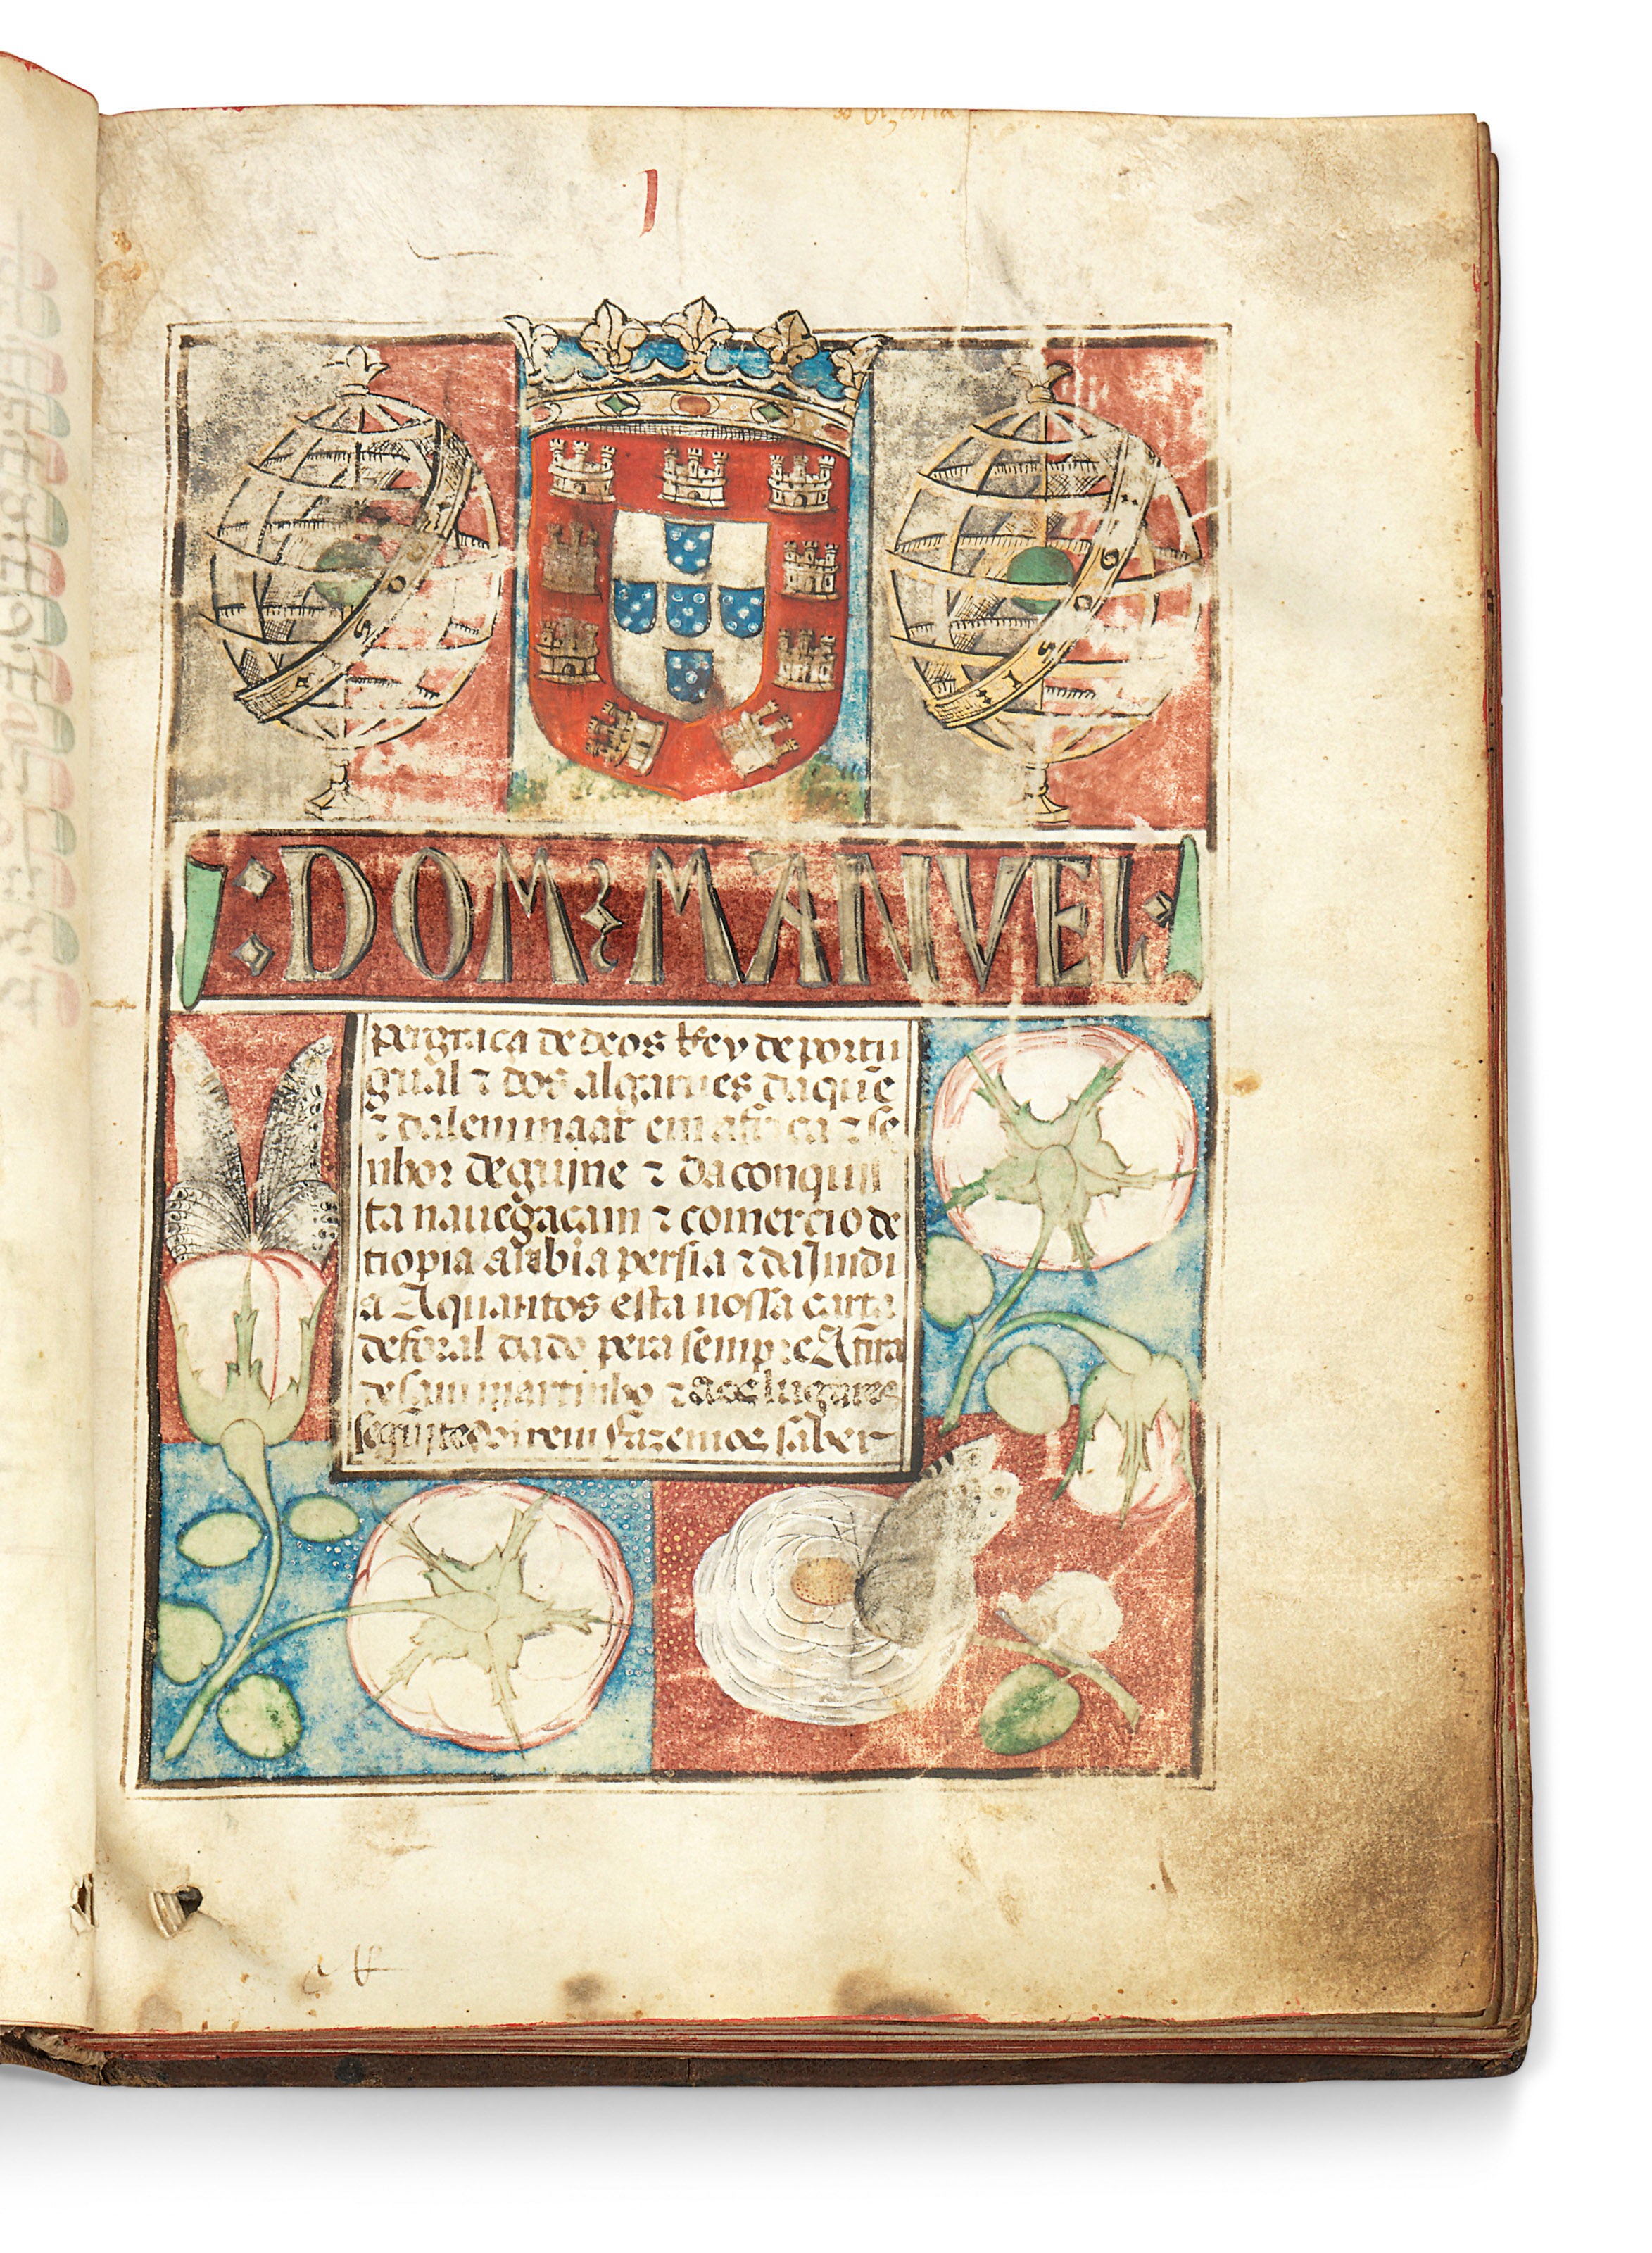 I
DOM MANVEL
per graca de deos Rey de portu
gual ⁊ dos algarues daquē
⁊ dalem maar em africa ⁊ se
nhor de guine ⁊ da conquis
ta nauegacam ⁊ comercio de
tiopia arabia persia ⁊ da Jndi
a A quantos esta nossa carta
de foral dado pera sempre A
de sam martinho ⁊ aos lugares
virem fazemos saber